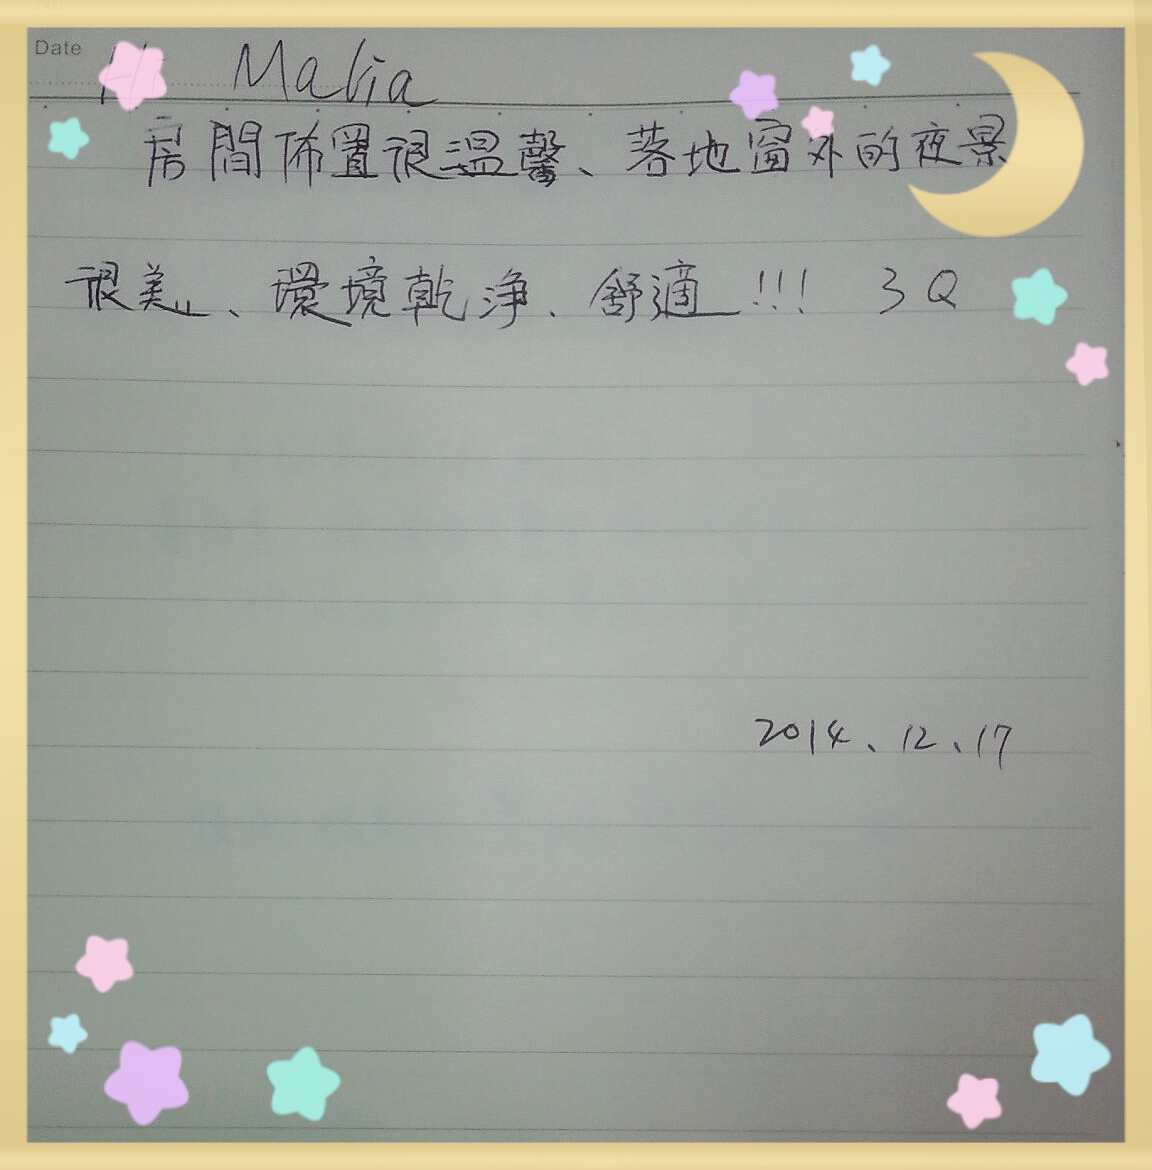 Date
Malia
房間佈置很溫馨、落地窗外的夜景
很美、環境乾淨、舒適!!! 3Q
2014、12、17